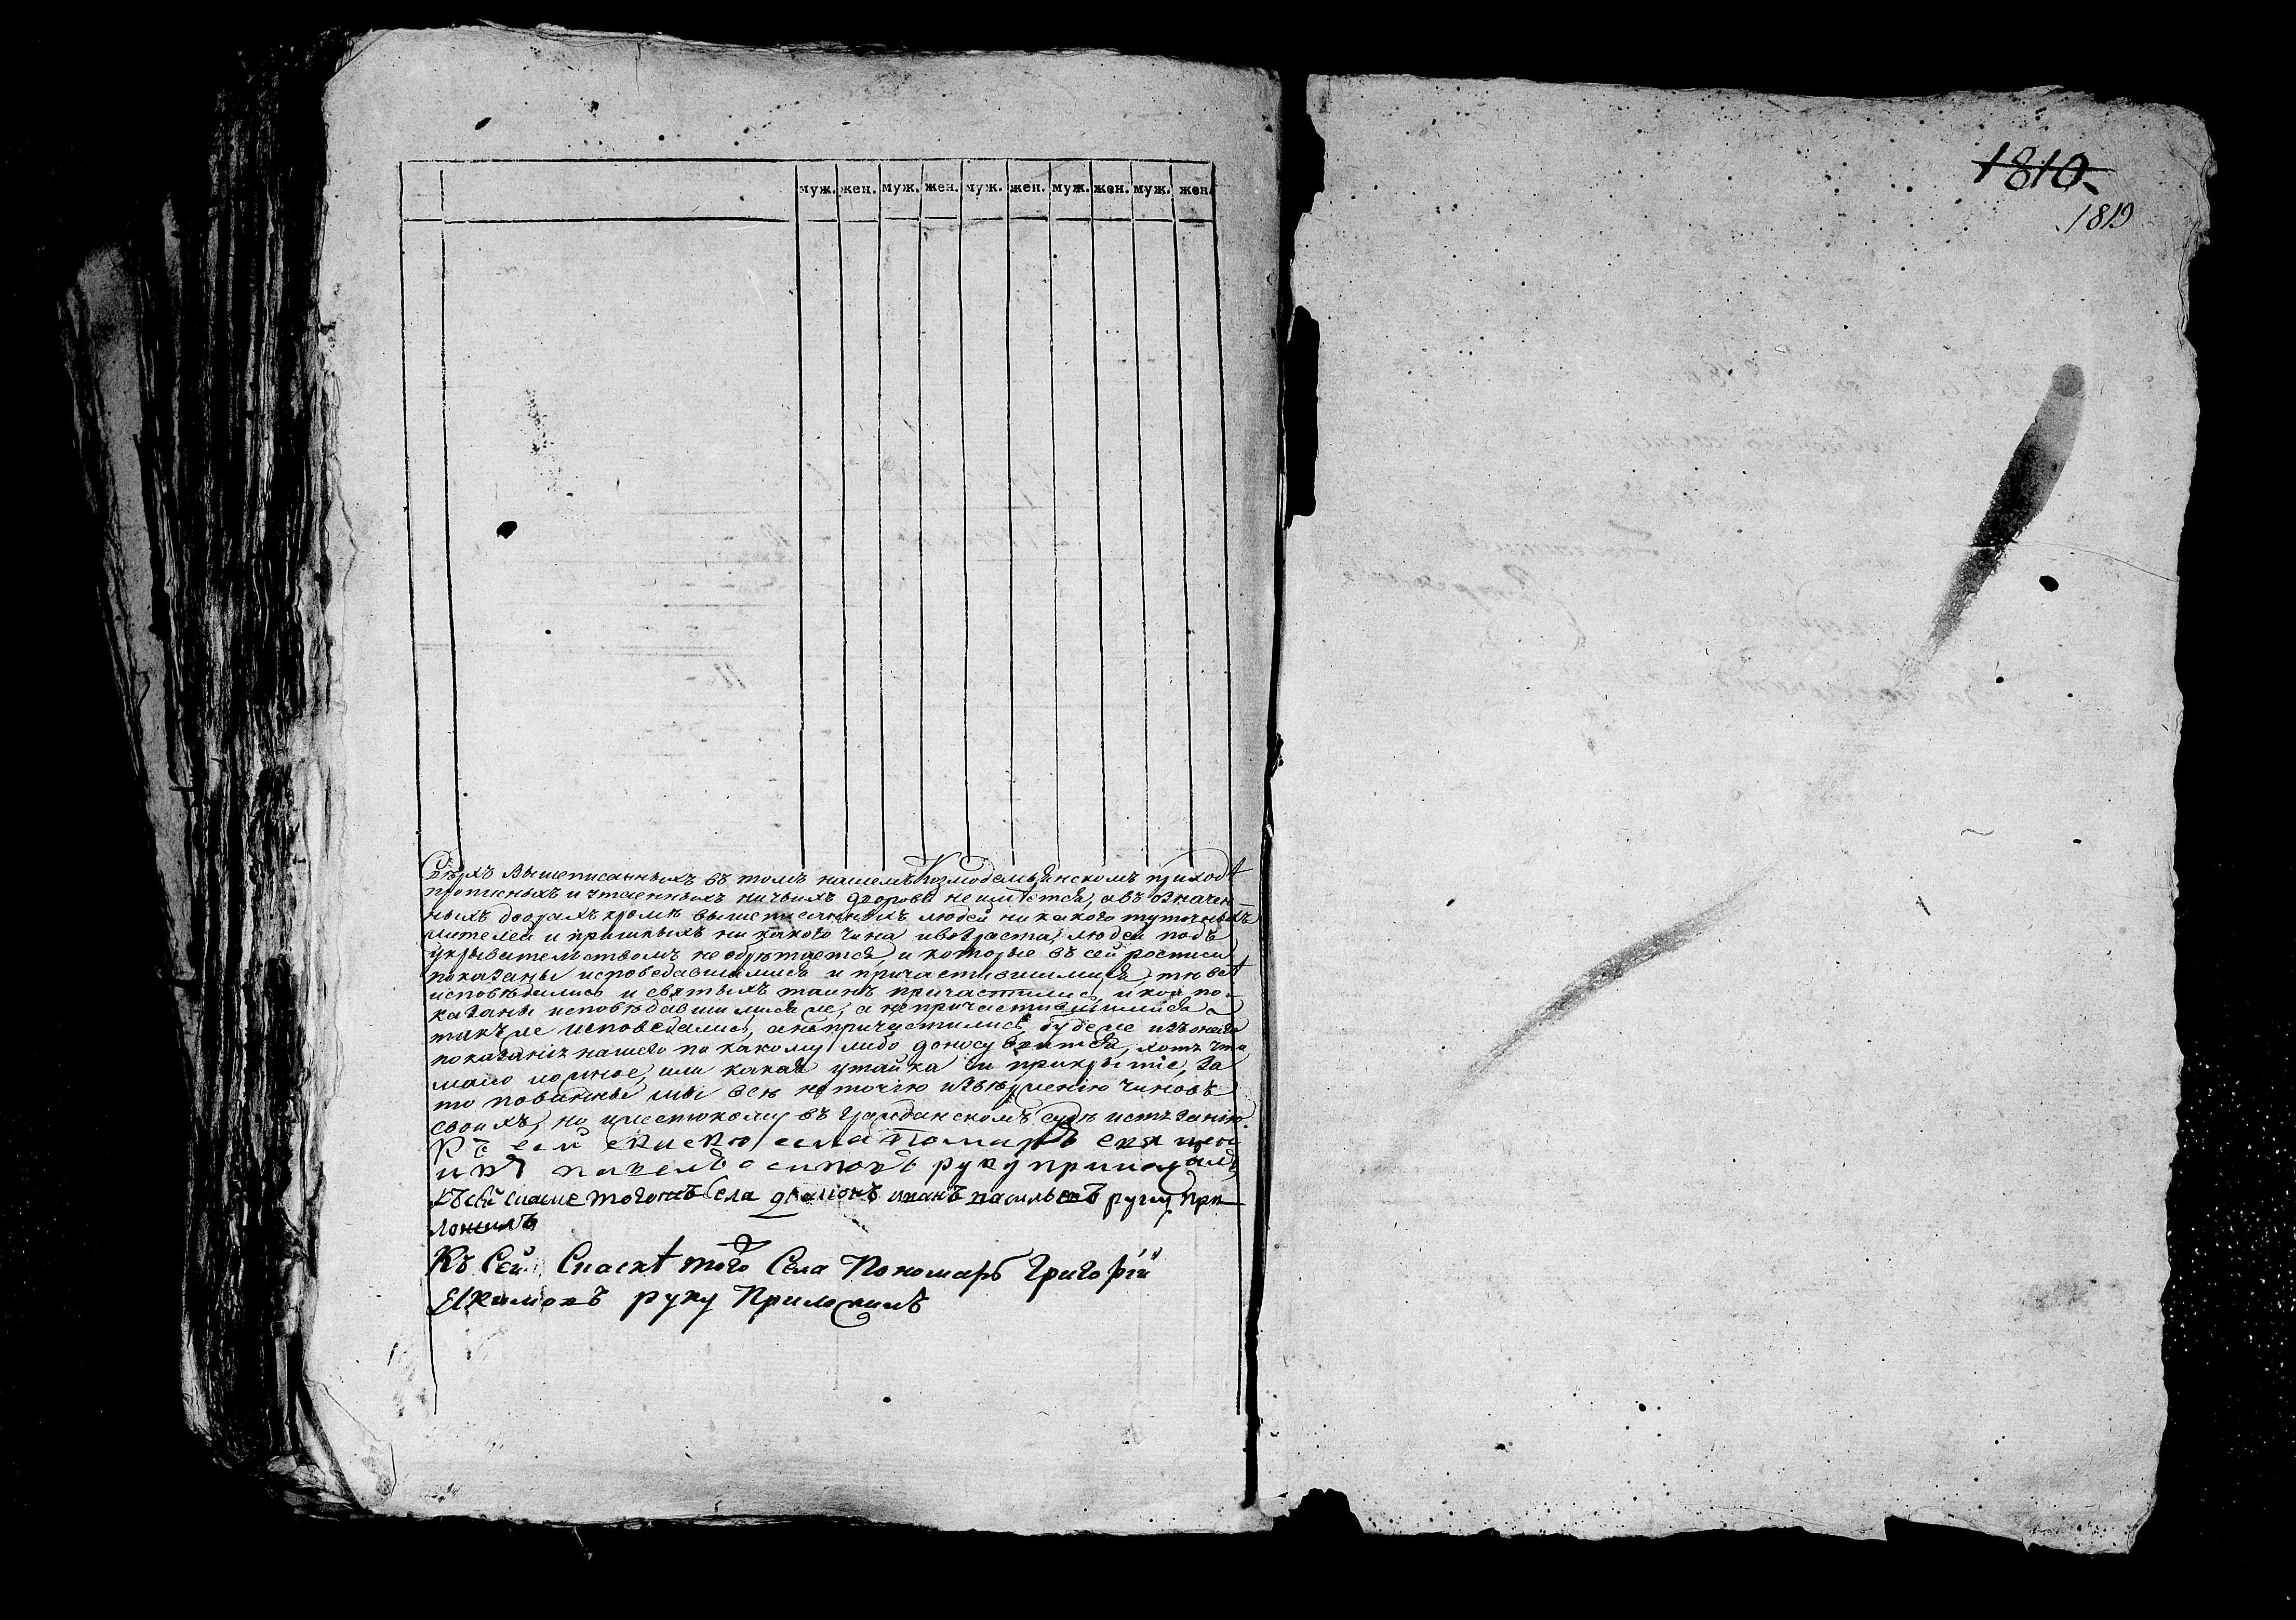 муж. жен. муж. жен. муж. жен. муж. жен. муж. жен.
вышеписанныхъ въ томъ нашемъ Козмодемьянскомъ приходѣ
прописныхъ и утаенныхъ ничьихъ дворовъ не имѣется, а въ означен-
ныхъ дворахъ кромѣ вышеписанныхъ людей никакого
жителей и пришлыхъ ни какого чина и возраста людей подъ
укрывательствомъ не обрѣтается, и которые въ сей росписи
показаны исповедавшимися и причастившимися, тѣ всѣ
исповѣдались и святыхъ таинъ причастились, и кои по-
казаны исповѣдавшимися же, а не причастившимися
такъ же исповедались, а не причастились, буде же
показанія нашего по какому либо доносу явится, хотя что
мало ложное, или какая утайка и прикрытіе, за
то повинны мы всѣ не точію изверженію чиновъ
своихъ, но и жестокому въ гражданскомъ судѣ истязанію.
Къ сей села
руку приложилъ
Къ сей того села иванъ васильевъ руку при
ложилъ
Къ Сей Сказкѣ того Села Пономарь Григорій
Екимовъ руку Приложилъ
1810
1819